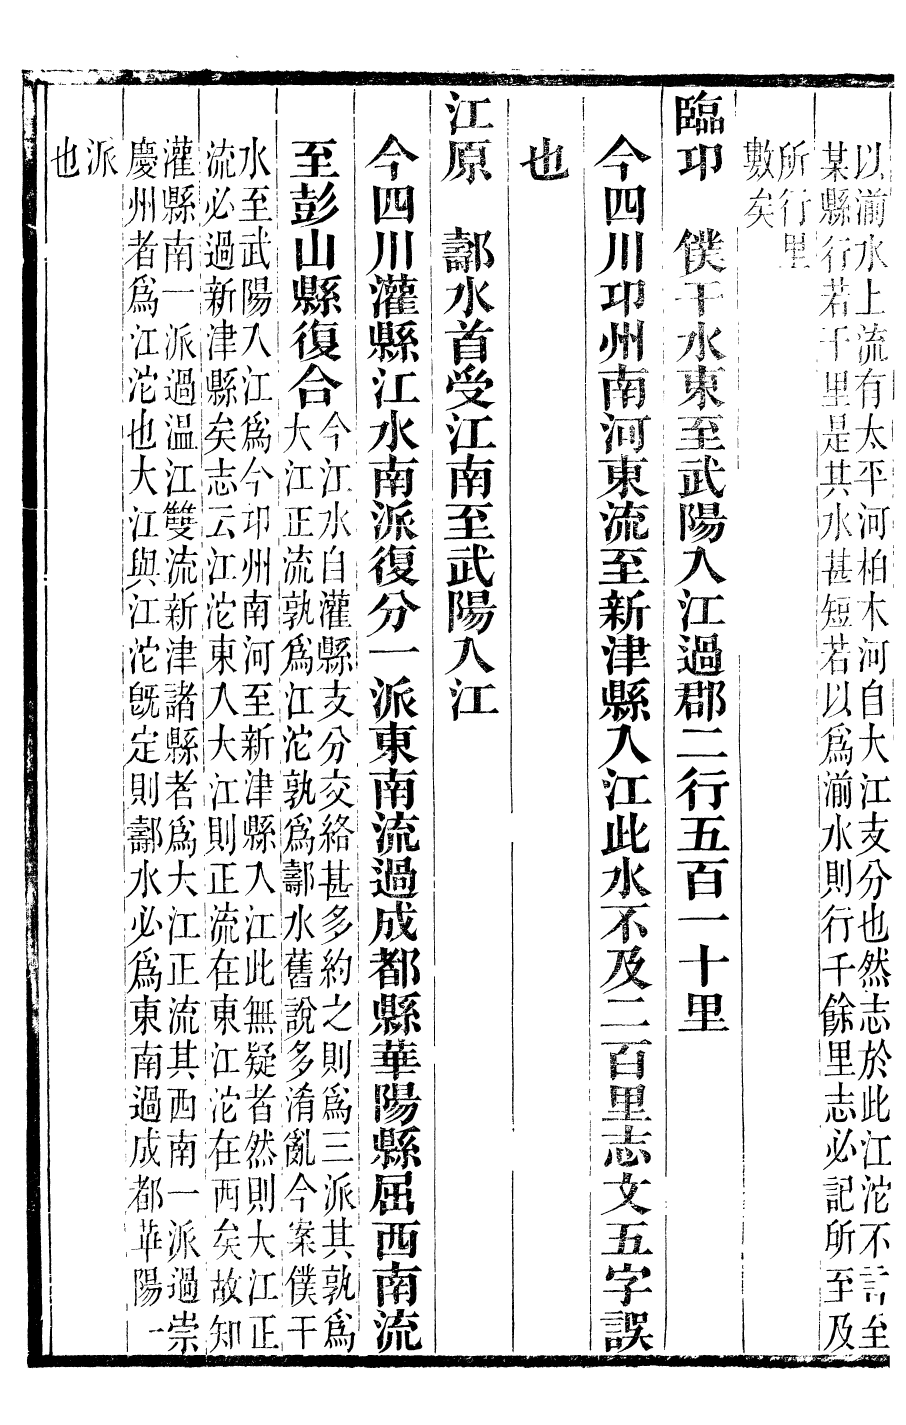 以湔水上流有太平河柏木河自大江支分也然志於此江沱不言至
某縣行若干里是其水甚短若以爲湔水則行千餘里志必記所至及
所行里
數矣
臨邛　僕干水東至武陽入江過郡二行五百一十里
今四川邛州南河東流至新津縣入江此水不及二百里志文五字誤
也
江原　䣝水首受江南至武陽入江
今四川灌縣江水南派復分一派東南流過成都縣華陽縣屈西南流
至彭山縣復合
今江水自灌縣支分交絡甚多約之則爲三派其孰爲
大江正流孰爲江沱孰爲䣝水舊說多淆亂今案僕干
水至武陽入江爲今邛州南河至新津縣入江此無疑者然則大江正
流必過新津縣矣志云江沱東入大江則正流在東江沱在西矣故知
灌縣南一派過溫江雙流新津諸縣者爲大江正流其西南一派過崇
慶州者爲江沱也大江與江沱旣定則䣝水必爲東南過成都華陽一
派
也